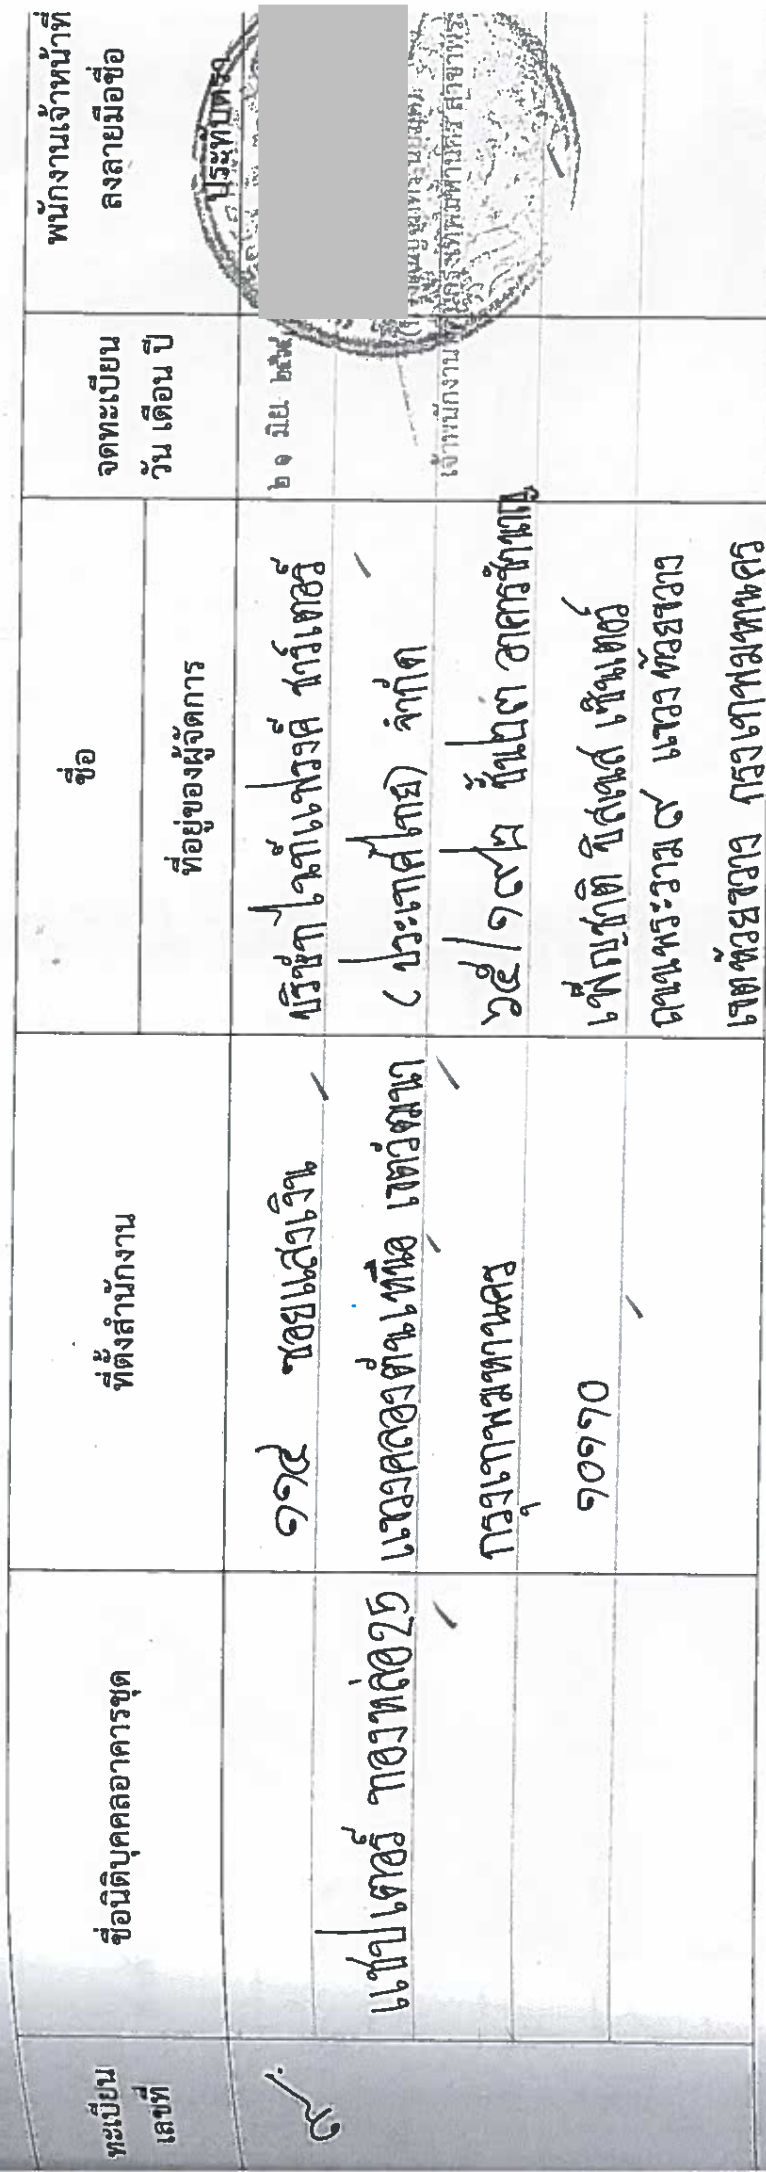 ทะเบียน
เลขที่
ชื่อนิติบุคคลอาคารชุด
ที่ตั้งสำนักงาน
ชื่อ
ที่อยู่ของผู้จัดการ
จดทะเบียน
วัน เดือน ปี
พนักงานเจ้าหน้าที่
ลงลายมือชื่อ
ประทับตรา
แชปเตอร์ ทองหล่อ25
๑๑๕ ซอยแสงเงิน
แขวงคลองตันเหนือ เขตวัฒนา
กรุงเทพมหานคร
๑๐๑๑๐
บริษัท ไนท์แฟรงค์ ชาร์เตอร์
(ประเทศไทย) จำกัด
๖๕/๑๙๒ ชั้น๒๓ อาคารชำนาญ
เพ็ญชาติ บิสเนส เซ็นเตอร์
ถนนพระราม ๙ แขวงห้วยขวาง
เขตห้วยขวาง กรุงเทพมหานคร
๒๑ มิย.
เจ้าพนักงาน